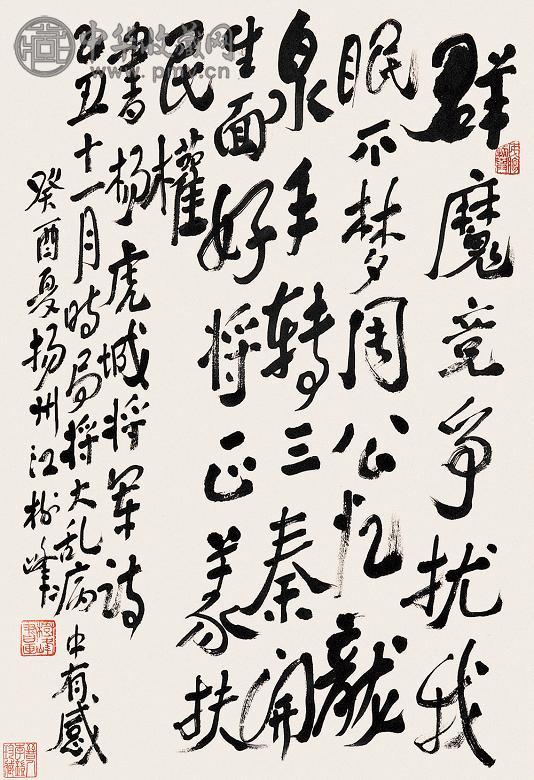 群魔竞争扰我
眠不梦周公忆龍
泉手转三秦開
生面好将正義扶
民權
書杨虎城将军诗
丑十一月时局将大乱病中有感
癸酉夏扬州江树峰
中华收藏网